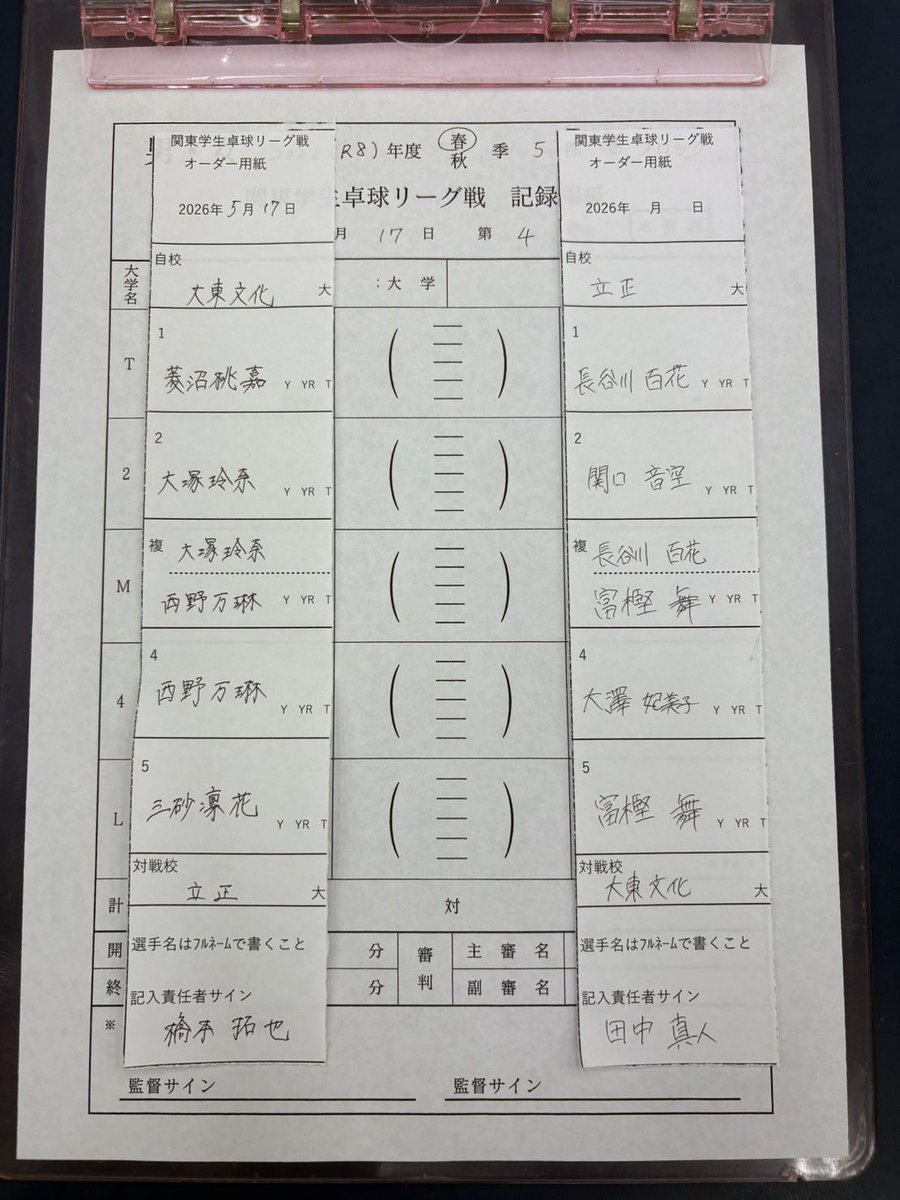 R8)年度 春 秋 季 5
生卓球リーグ戦 記録
月 17 日 第 4
大学名
:大 学
T
2
M
4
L
計
対
開
分
審判
主 審 名
終
分
副 審 名
※
監督サイン
監督サイン
関東学生卓球リーグ戦
オーダー用紙
2026年 5月 17日
自校
大東文化 大
1
菱沼桃嘉 Y YR T
2
大塚玲奈 Y YR T
複 大塚玲奈
西野万琳 Y YR T
4
西野万琳 Y YR T
5
三砂凛花 Y YR T
対戦校
立正 大
選手名はﾌﾙﾈｰﾑで書くこと
記入責任者サイン
橋本 拓也
関東学生卓球リーグ戦
オーダー用紙
2026年 月 日
自校
立正 大
1
長谷川 百花 Y YR T
2
関口 音空 Y YR T
複 長谷川 百花
富樫 舞 Y YR T
4
大澤 妃美子 Y YR T
5
富樫 舞 Y YR T
対戦校
大東文化 大
選手名はﾌﾙﾈｰﾑで書くこと
記入責任者サイン
田中 真人